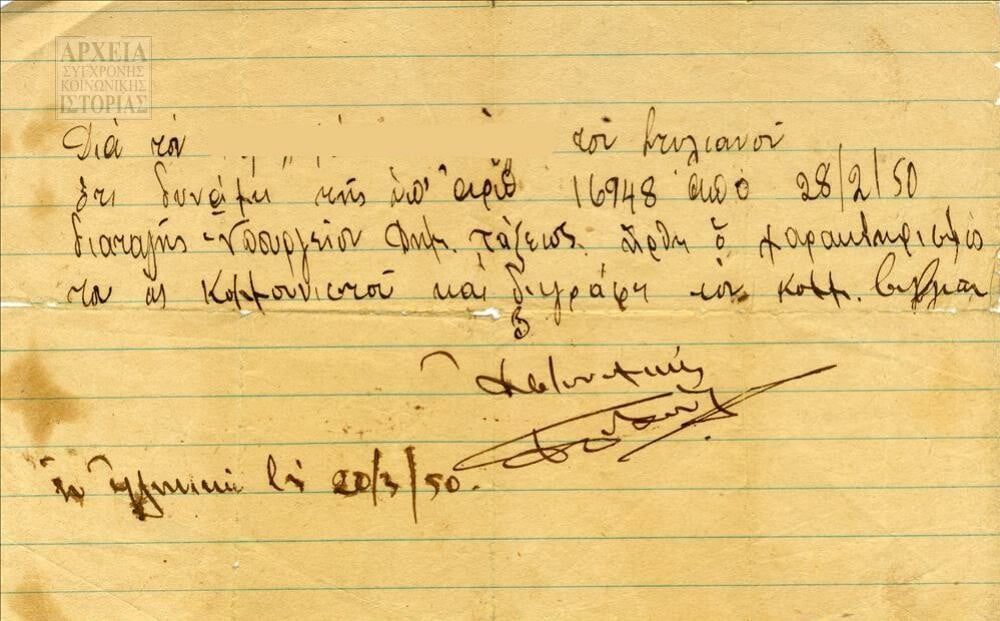 ΑΡΧΕΙΑ
ΣΥΓΧΡΟΝΗΣ
ΚΟΙΝΩΝΙΚΗΣ
ΙΣΤΟΡΙΑΣ
Διά τον του Στυλιανού
ότι δυνάμει της υπ' αριθ 16948 από 28/2/50
διαταγής Υπουργείου Δημ. Τάξεως ήρθη ο χαρακτηρισμός
του ως Κομμουνιστού και διεγράφη των κομμ.
Ο
Αστυνομικής
τη 20/3/50.